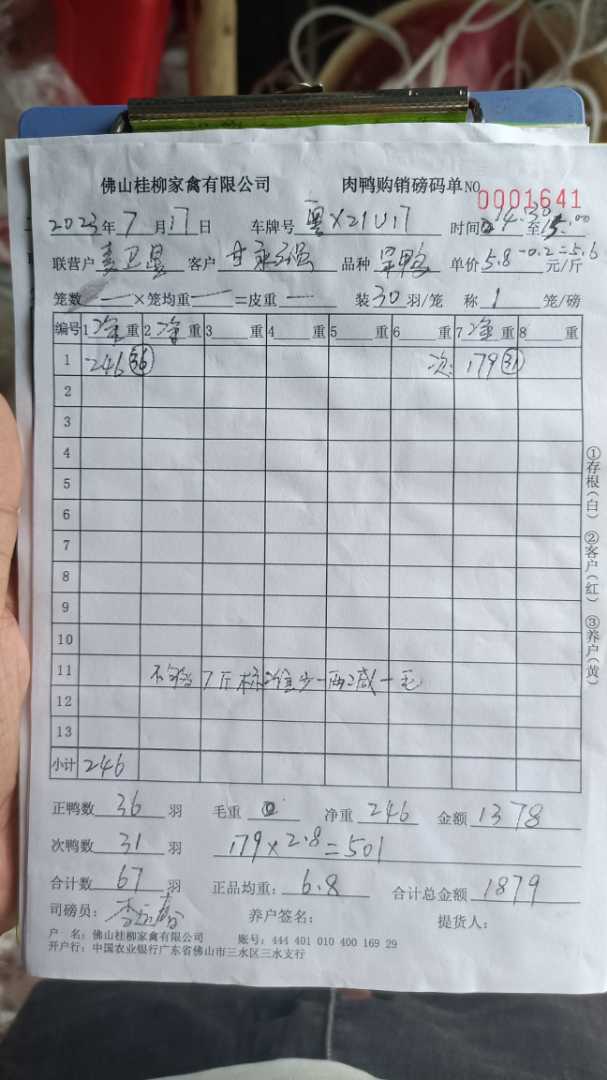 佛山桂柳家禽有限公司 肉鸭购销磅码单 NO 0001641
2023年7月17日 车牌号 粤X21U17 时间 14.30至15.00
联营户 客户 品种 单价5.8-0.2=5.6元/斤
笼数 — ×笼均重 — =皮重 — 装30羽/笼 称1笼/磅
编号 1净重 2净重 3 重 4 重 5 重 6 重 7净重 8 重
1 246 36 次: 179 31
2
3
4
5
6
7
8
9
10
11 不够7斤标准少一两减一毛
12
13
小计 246
正鸭数36羽 毛重0 净重246 金额1378
次鸭数31羽 179×2.8=501
合计数67羽 正品均重:6.8 合计总金额1879
司磅员: 养户签名: 提货人:
户 名:佛山桂柳家禽有限公司 账号:444 401 010 400 169 29
开户行:中国农业银行广东省佛山市三水区三水支行
①存根(白) ②客户(红) ③养户(黄)